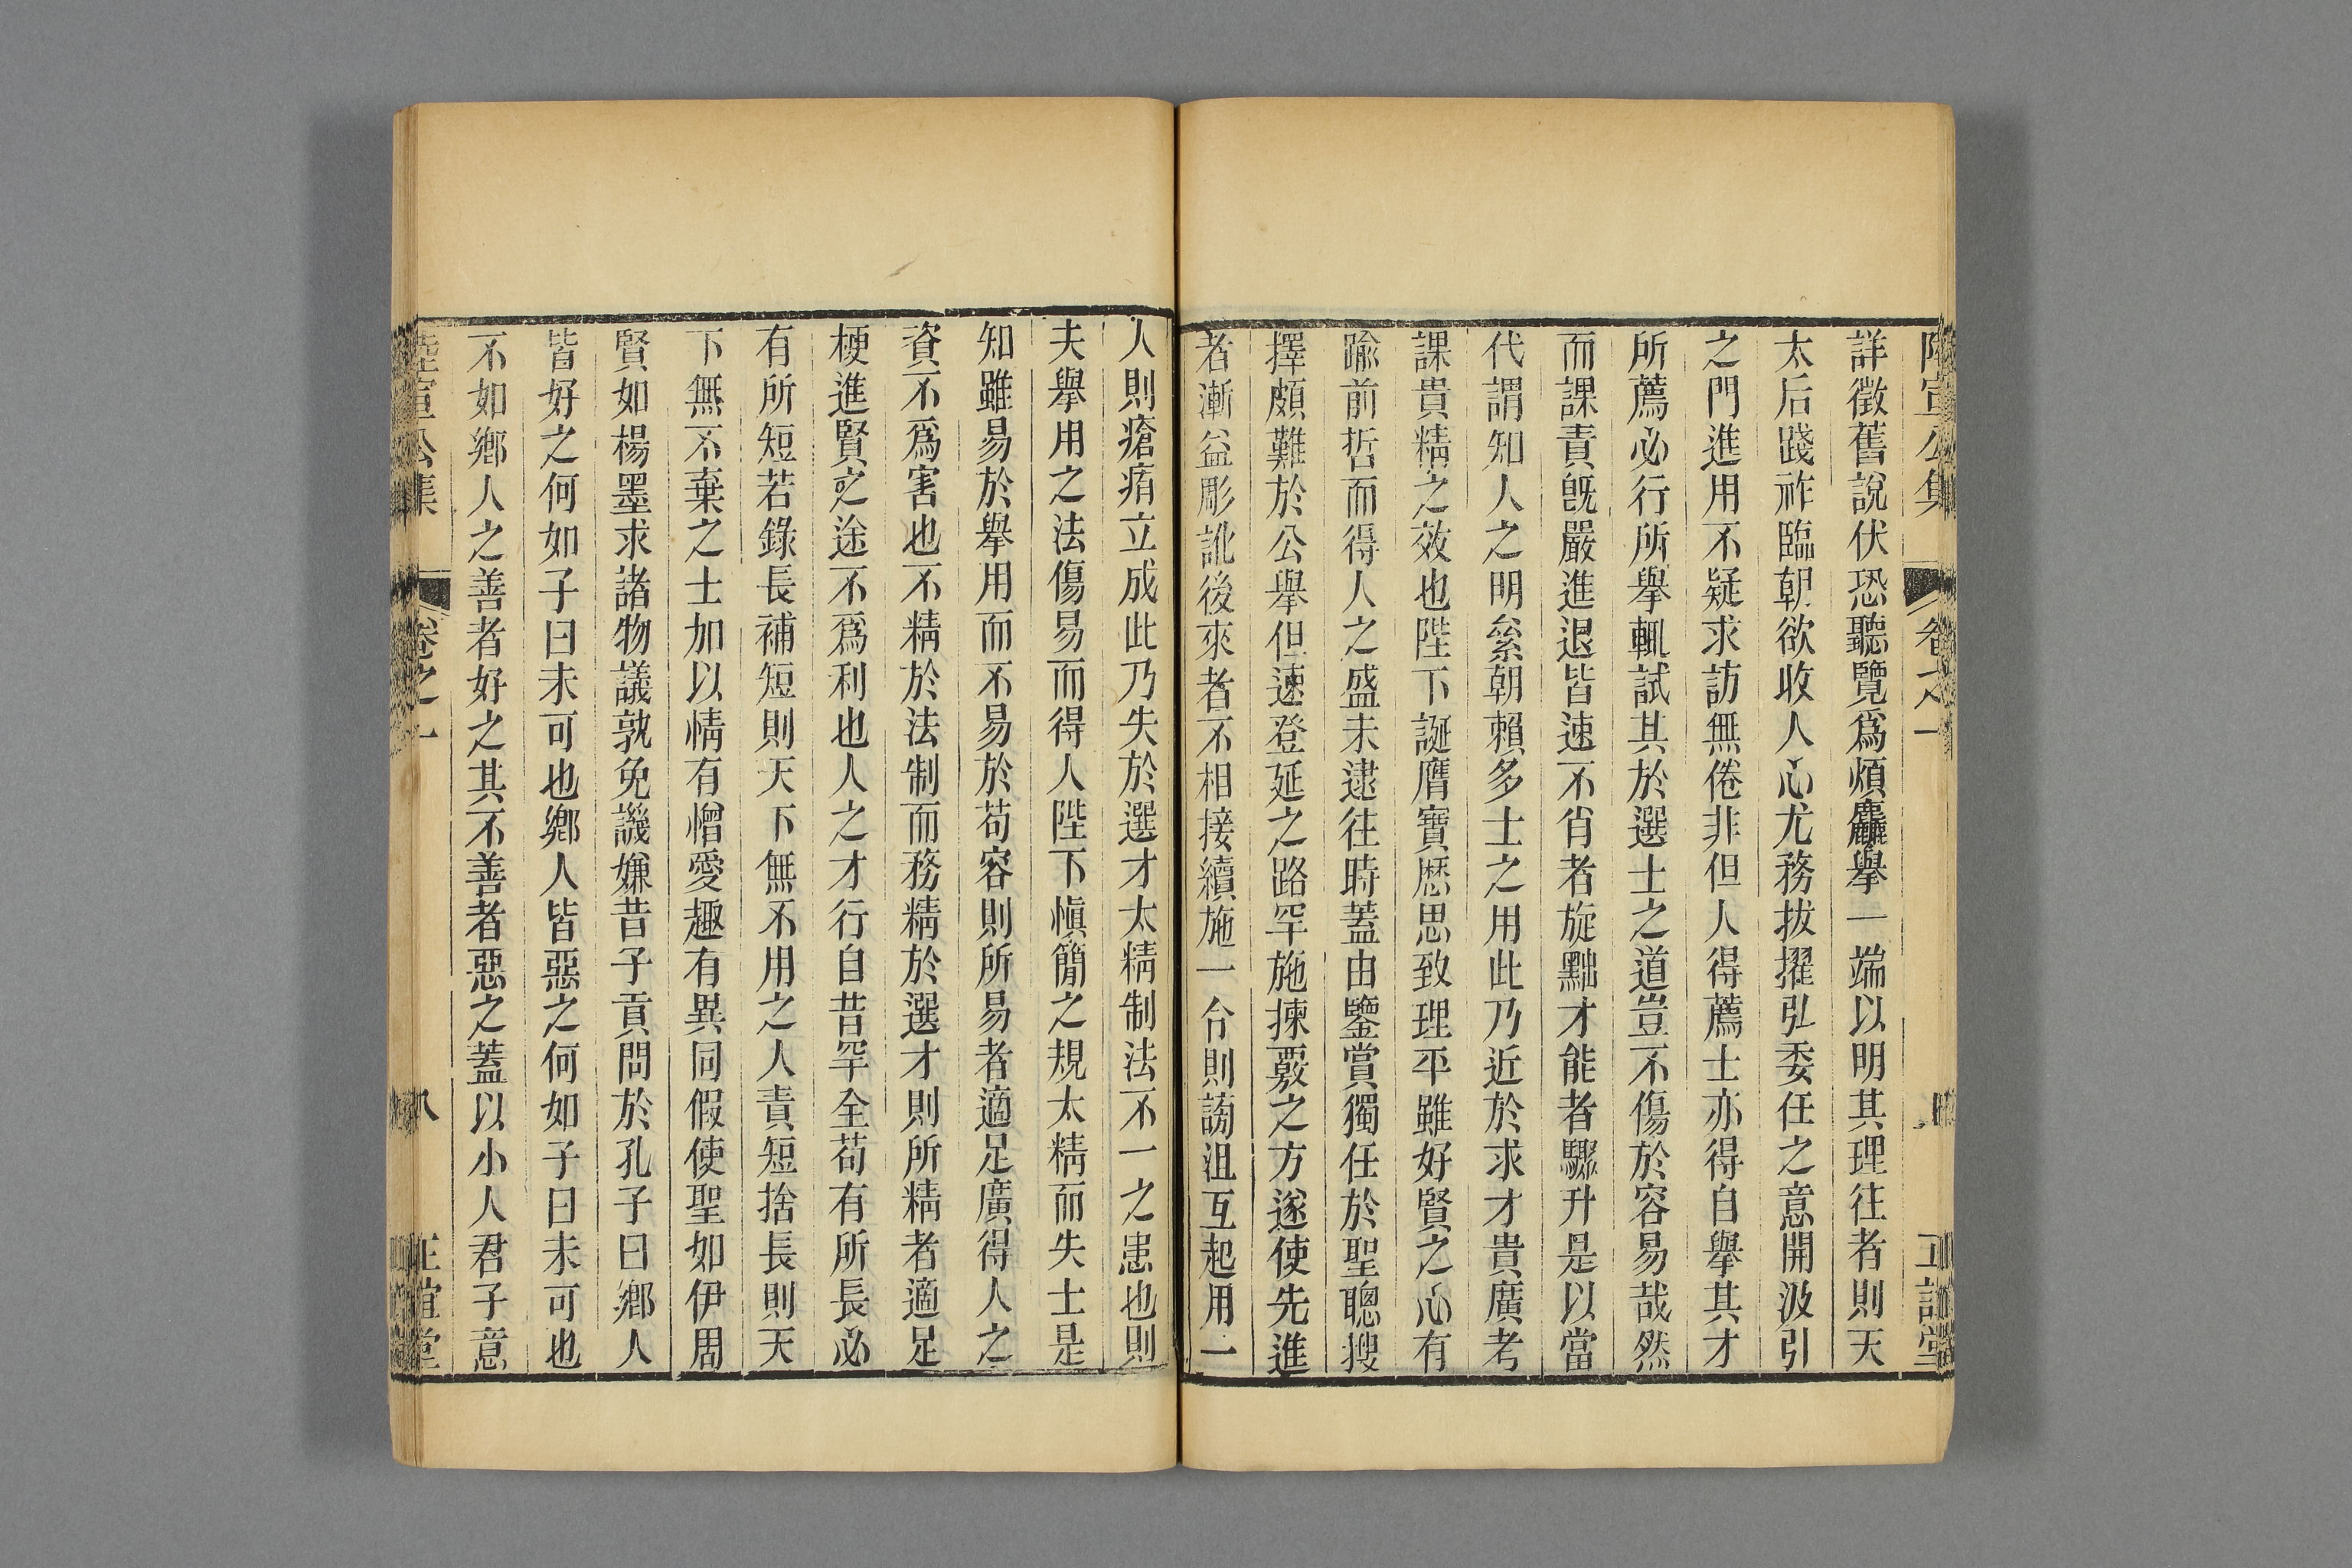 陸宣公集 卷之一 正誼堂
詳徵舊說伏恐聽覽爲煩麤舉一端以明其理往者則天
太后踐祚臨朝欲收人心尤務拔擢弘委任之意開汲引
之門進用不疑求訪無倦非但人得薦士亦得自舉其才
所薦必行所舉輒試其於選士之道豈不傷於容易哉然
而課責旣嚴進退皆速不肖者旋黜才能者驟升是以當
代謂知人之明絫朝賴多士之用此乃近於求才貴廣考
課貴精之效也陛下誕膺寶歷思致理平雖好賢之心有
踰前哲而得人之盛未逮往時蓋由鑒賞獨任於聖聰搜
擇頗難於公舉但速登延之路罕施揀覈之方遂使先進
者漸益彫訛後來者不相接續施一令則謗沮互起用一
人則瘡痏立成此乃失於選才太精制法不一之患也則
夫舉用之法傷易而得人陛下愼簡之規太精而失士是
知雖易於舉用而不易於苟容則所易者適足廣得人之
資不爲害也不精於法制而務精於選才則所精者適足
梗進賢之途不爲利也人之才行自昔罕全苟有所長必
有所短若錄長補短則天下無不用之人責短捨長則天
下無不棄之士加以情有憎愛趣有異同假使聖如伊周
賢如楊墨求諸物議孰免譏嫌昔子貢問於孔子曰鄉人
皆好之何如子曰未可也鄉人皆惡之何如子曰未可也
不如鄉人之善者好之其不善者惡之蓋以小人君子意
陸宣公集 卷之一 八 正誼堂